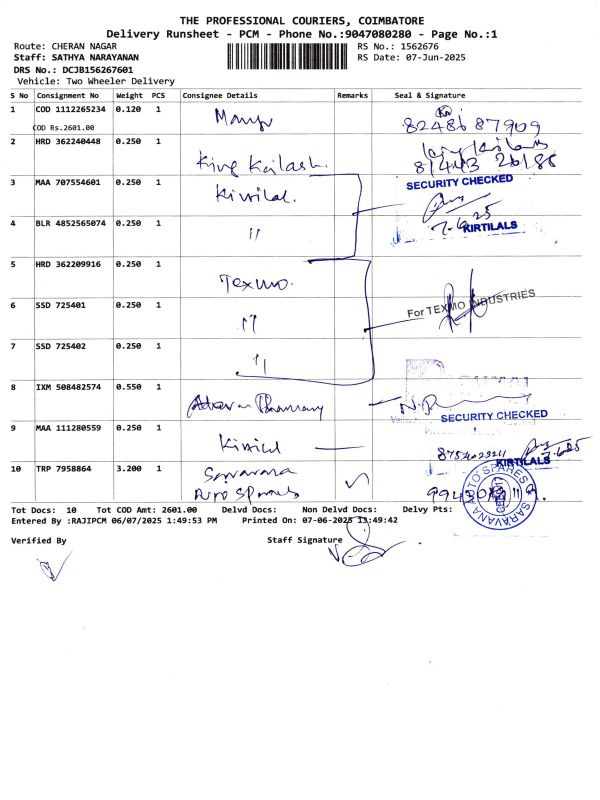 THE PROFESSIONAL COURIERS, COIMBATORE
Delivery Runsheet - PCM - Phone No.:9047080280 - Page No.:1
Route: CHERAN NAGAR
Staff: SATHYA NARAYANAN
DRS No.: DCJB156267601
Vehicle: Two Wheeler Delivery
RS No.: 1562676
RS Date: 07-Jun-2025
S No Consignment No Weight PCS Consignee Details Remarks Seal & Signature
1 COD 1112265234 0.120 1
COD Rs.2601.00
82486 87909
2 HRD 362240448 0.250 1 King Kailash.
3 MAA 707554601 0.250 1 Kirtilal.
SECURITY CHECKED
7-6-25
KIRTILALS
4 BLR 4852565074 0.250 1 "
5 HRD 362209916 0.250 1 Texmo.
For TEXMO INDUSTRIES
6 SSD 725401 0.250 1 "
7 SSD 725402 0.250 1 "
8 IXM 508482574 0.550 1 Pharmacy
SECURITY CHECKED
9 MAA 111280559 0.250 1
7-6-25
KIRTILALS
10 TRP 7958864 3.200 1 Saravana
Auto Spares
SARAVANA AUTO SPARES
Tot Docs: 10 Tot COD Amt: 2601.00 Delvd Docs: Non Delvd Docs: Delvy Pts:
Entered By :RAJIPCM 06/07/2025 1:49:53 PM Printed On: 07-06-2025 13:49:42
Verified By Staff Signature